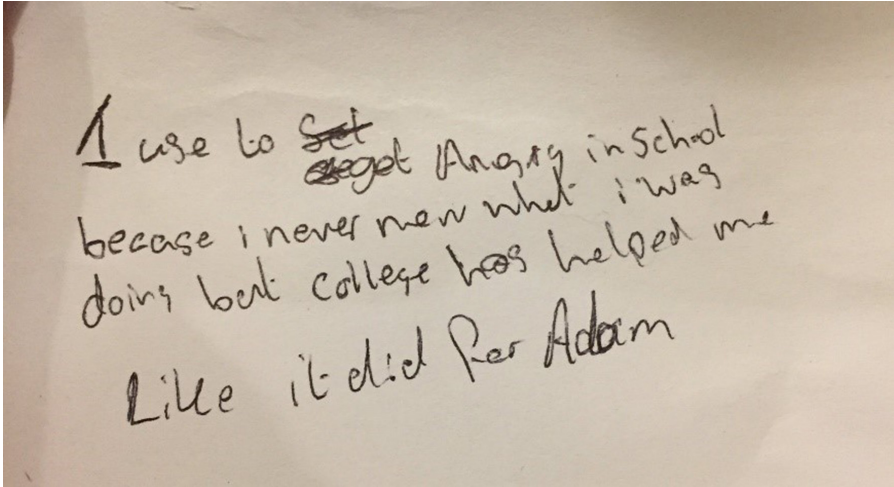 I use to get
get Angry in School
becase i never new what i was
doing but college has helped me
Like it did for Adam